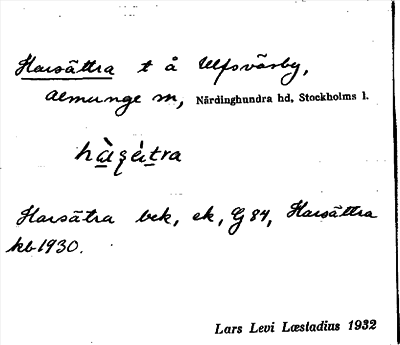 Harsättra t å Ulfsväsby,
Almunge sn, Närdinghundra hd, Stockholms l.
Harsätra bek, ek, Gj 84, Harsättra
kb 1930.
Lars Levi Læstadius 1932